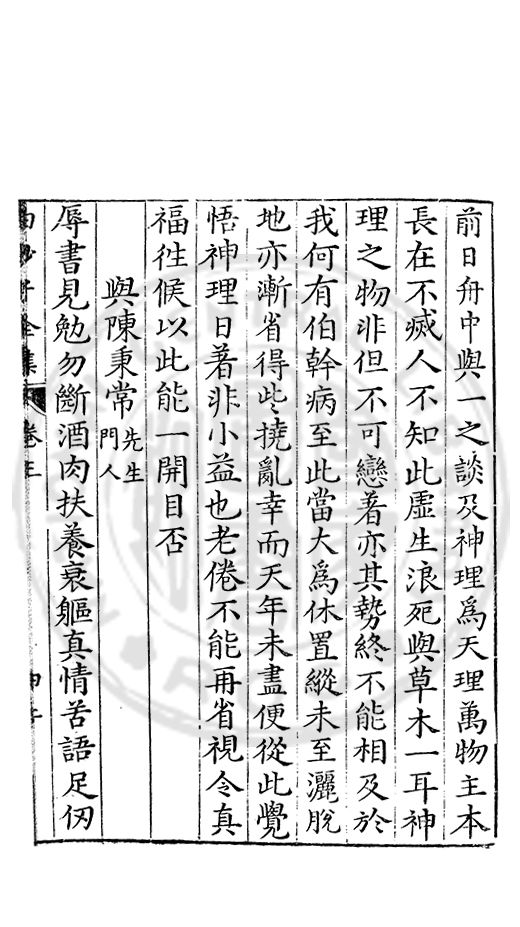 前日舟中與一之談及神理爲天理萬物主本
長在不滅人不知此虛生浪死與草木一耳神
理之物非但不可戀著亦其勢終不能相及於
我何有伯幹病至此當大爲休置縱未至灑脫
地亦漸省得些撓亂幸而天年未盡便從此覺
悟神理日著非小益也老倦不能再省視令真
福往候以此能一開目否
與陳秉常先生門人
辱書見勉勿斷酒肉扶養衰軀真情苦語足仞
白沙子全集 卷三